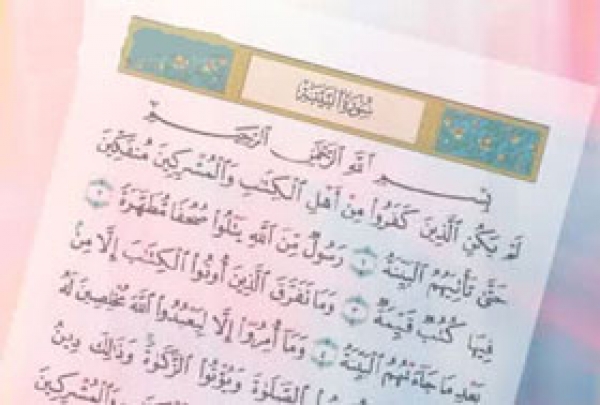 سُورَةُ البَيِّنَةِ
بِسْمِ ٱللَّهِ ٱلرَّحْمَٰنِ ٱلرَّحِيمِ
لَمْ يَكُنِ ٱلَّذِينَ كَفَرُوا۟ مِنْ أَهْلِ ٱلْكِتَٰبِ وَٱلْمُشْرِكِينَ مُنفَكِّينَ
حَتَّىٰ تَأْتِيَهُمُ ٱلْبَيِّنَةُ ١ رَسُولٌ مِّنَ ٱللَّهِ يَتْلُوا۟ صُحُفًا مُّطَهَّرَةً ٢
فِيهَا كُتُبٌ قَيِّمَةٌ ٣ وَمَا تَفَرَّقَ ٱلَّذِينَ أُوتُوا۟ ٱلْكِتَٰبَ إِلَّا مِنۢ
بَعْدِ مَا جَآءَتْهُمُ ٱلْبَيِّنَةُ ٤ وَمَآ أُمِرُوٓا۟ إِلَّا لِيَعْبُدُوا۟ ٱللَّهَ مُخْلِصِينَ لَهُ
ٱلصَّلَوٰةَ وَيُؤْتُوا۟ ٱلزَّكَوٰةَ ۚ وَذَٰلِكَ دِينُ
وَٱلْمُشْرِكِينَ